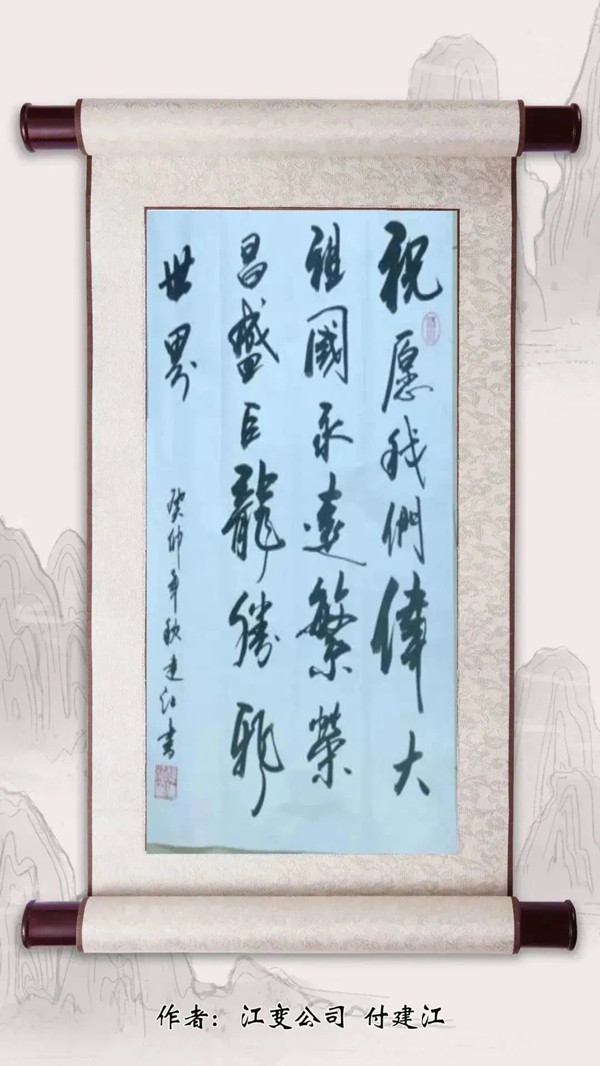 祝愿我們偉大
祖國永遠繁榮
昌盛巨龍騰飛
世界
癸卯年秋建江書
作者：江变公司 付建江